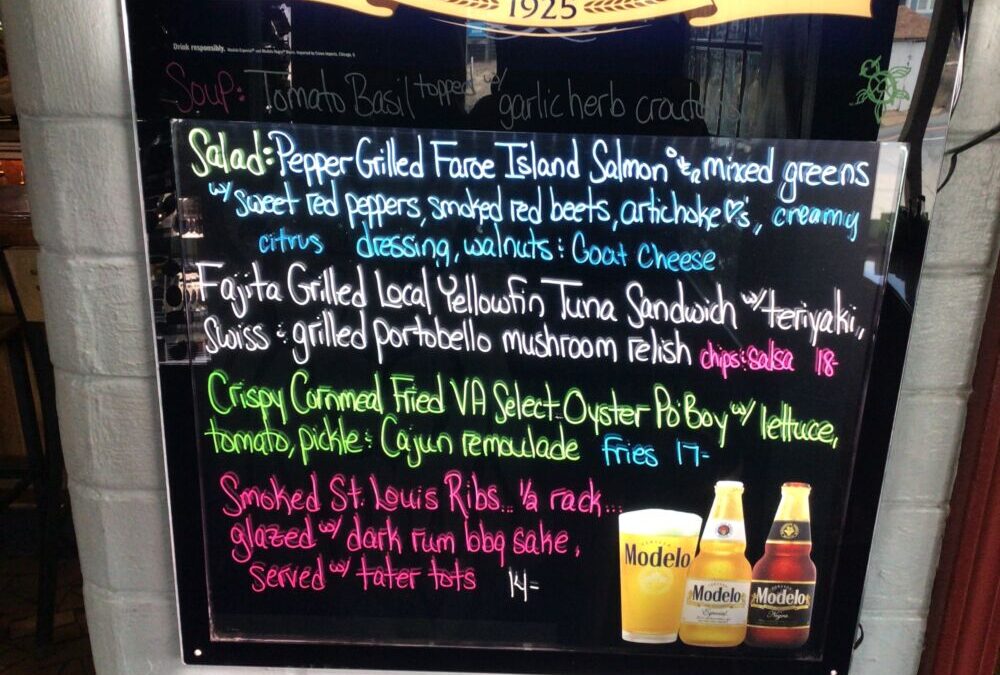 1925
Drink responsibly.
Soup: Tomato Basil topped w/ garlic herb croutons
Salad: Pepper Grilled Faroe Island Salmon mixed greens
w/ sweet red peppers, smoked red beets, artichoke ♡'s, creamy
citrus dressing, walnuts & Goat Cheese
Fajita Grilled Local Yellowfin Tuna Sandwich w/ teriyaki,
Swiss & grilled portobello mushroom relish chips & salsa 18-
Crispy Cornmeal Fried VA Select Oyster Po'Boy w/ lettuce,
tomato, pickle & Cajun remoulade fries 17-
Smoked St. Louis Ribs... ½ rack...
glazed w/ dark rum bbq sake,
served w/ tater tots 14-
Modelo
Modelo
Especial
Modelo
Negra